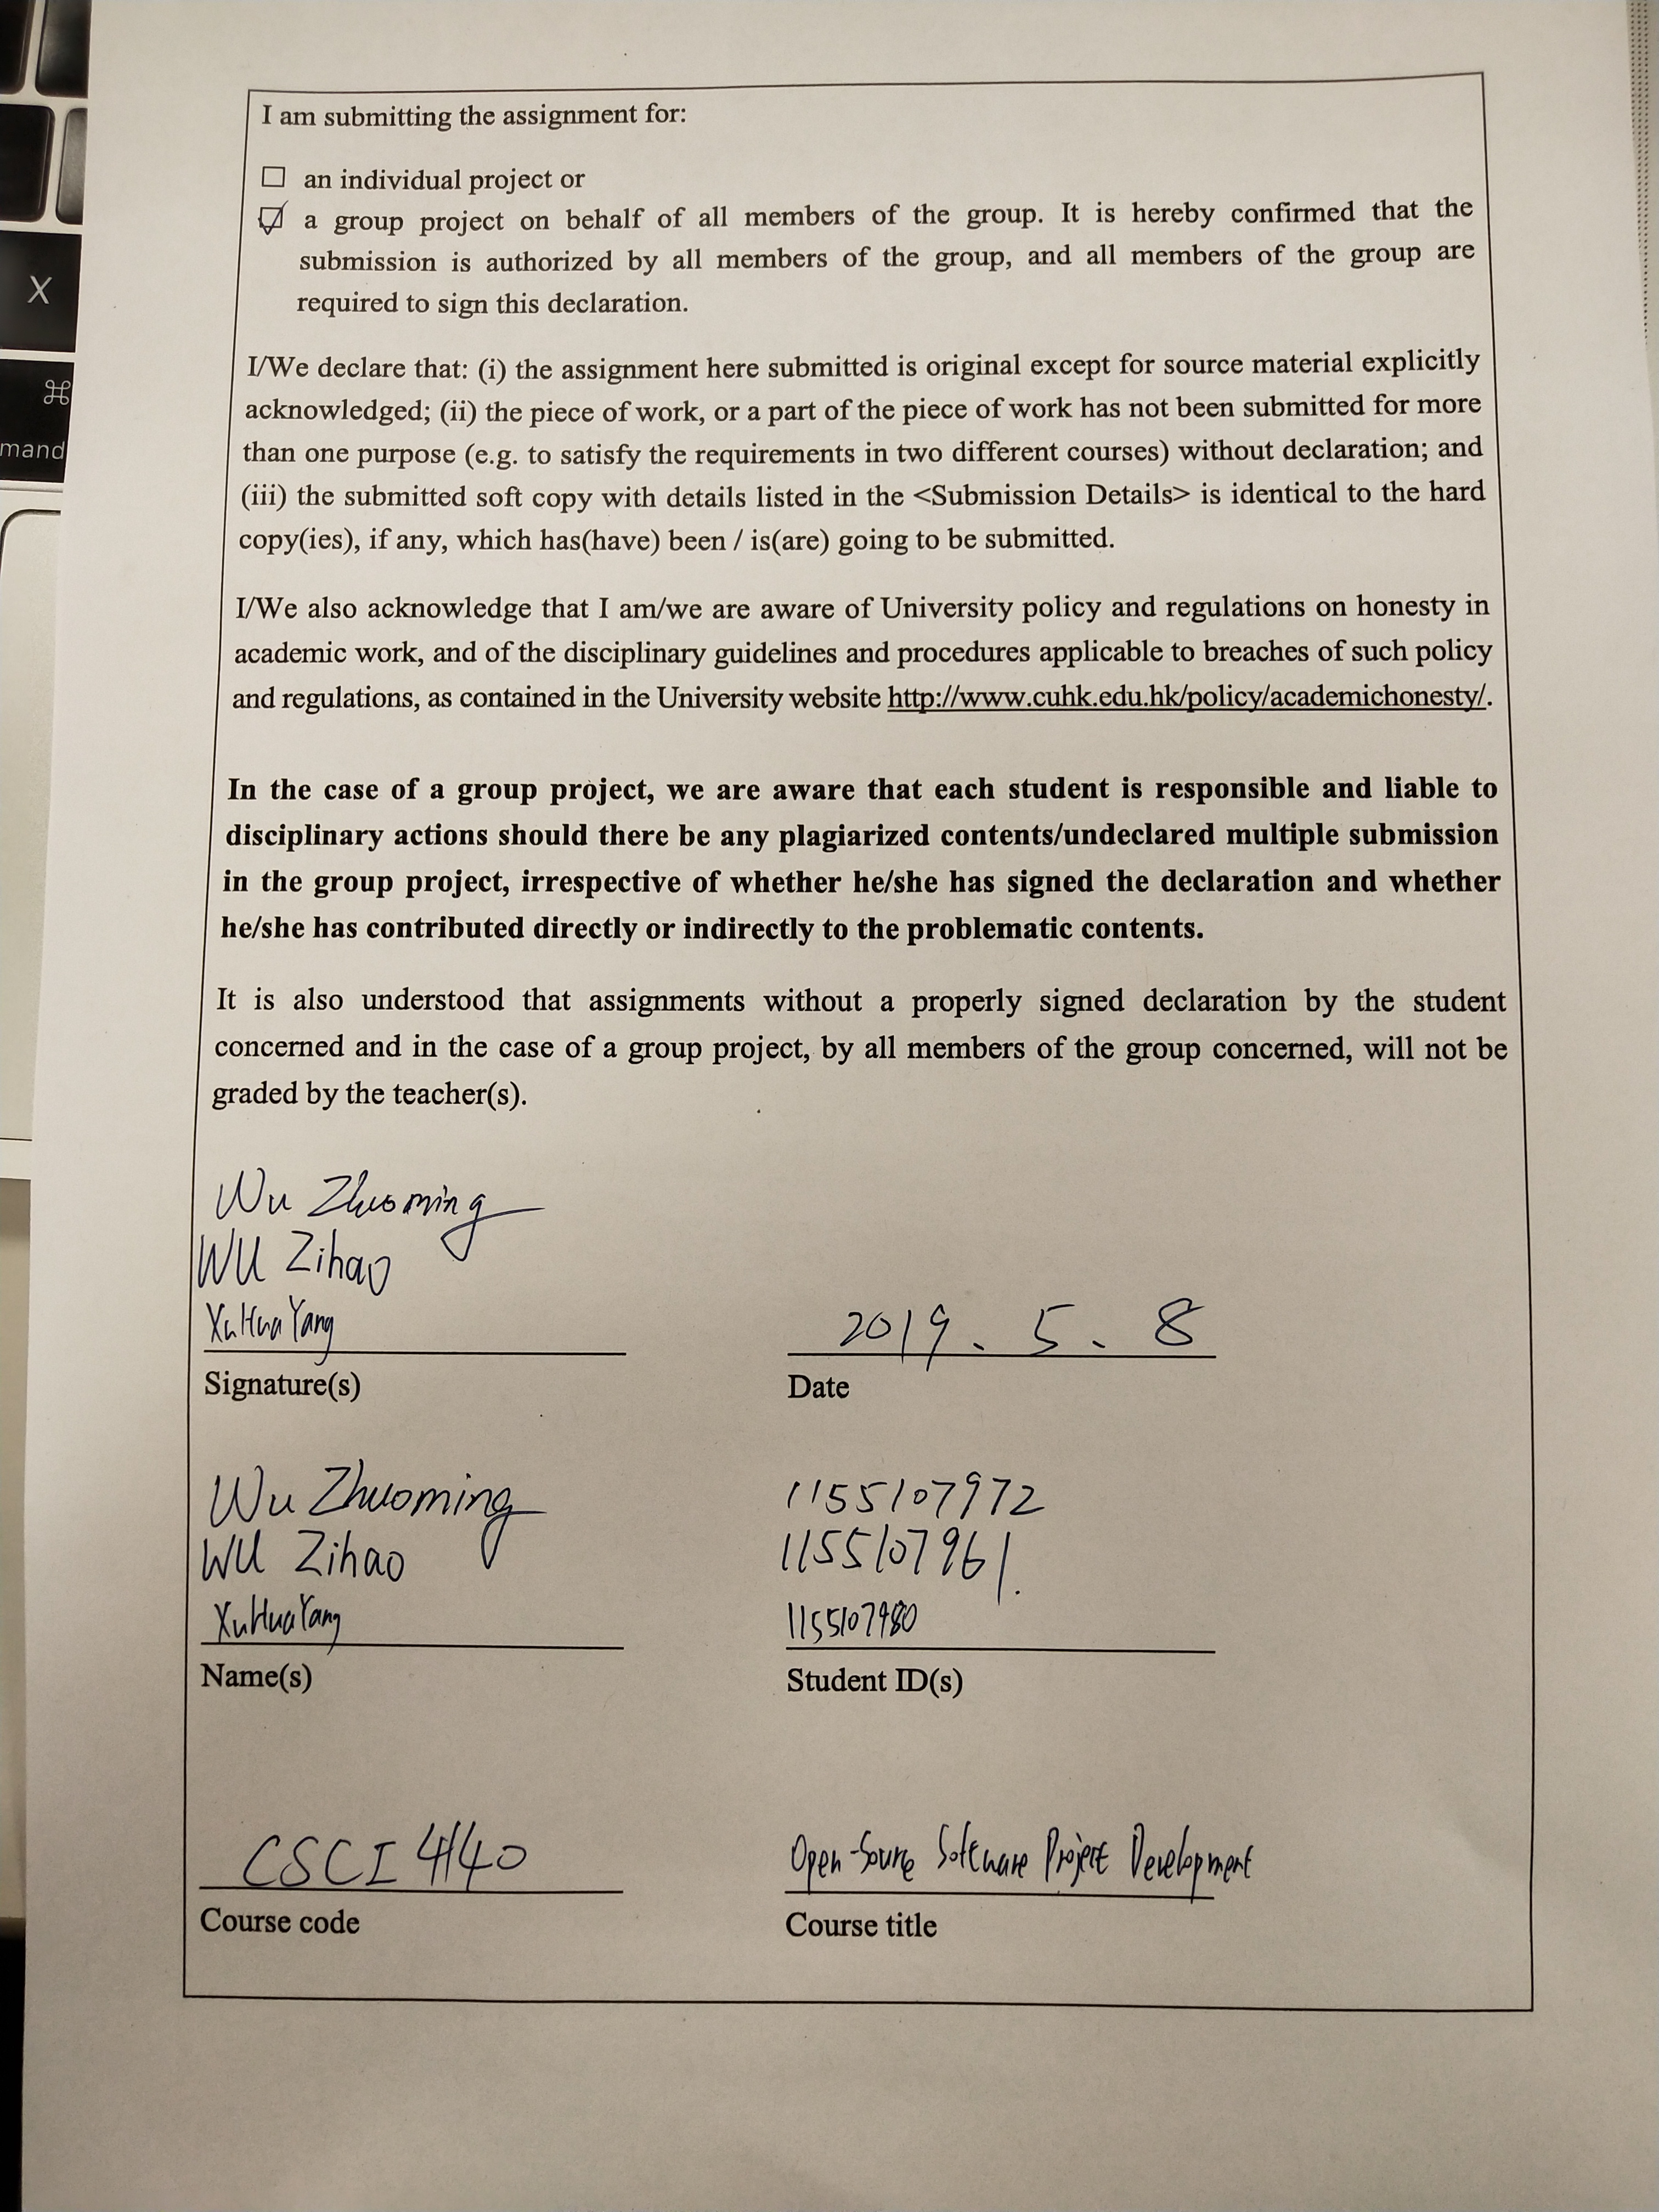 I am submitting the assignment for:
☐ an individual project or
☑ a group project on behalf of all members of the group. It is hereby confirmed that the
submission is authorized by all members of the group, and all members of the group are
required to sign this declaration.
I/We declare that: (i) the assignment here submitted is original except for source material explicitly
acknowledged; (ii) the piece of work, or a part of the piece of work has not been submitted for more
than one purpose (e.g. to satisfy the requirements in two different courses) without declaration; and
(iii) the submitted soft copy with details listed in the <Submission Details> is identical to the hard
copy(ies), if any, which has(have) been / is(are) going to be submitted.
I/We also acknowledge that I am/we are aware of University policy and regulations on honesty in
academic work, and of the disciplinary guidelines and procedures applicable to breaches of such policy
and regulations, as contained in the University website http://www.cuhk.edu.hk/policy/academichonesty/.
In the case of a group project, we are aware that each student is responsible and liable to
disciplinary actions should there be any plagiarized contents/undeclared multiple submission
in the group project, irrespective of whether he/she has signed the declaration and whether
he/she has contributed directly or indirectly to the problematic contents.
It is also understood that assignments without a properly signed declaration by the student
concerned and in the case of a group project, by all members of the group concerned, will not be
graded by the teacher(s).
Wu Zhuoming
WU Zihao
XuHua Yang 2019. 5. 8
Signature(s) Date
Wu Zhuoming 1155107972
WU Zihao 1155107961.
XuHuaYang 1155107980
Name(s) Student ID(s)
CSCI 4140 Open-Source Software Project Development
Course code Course title
X
⌘
mand